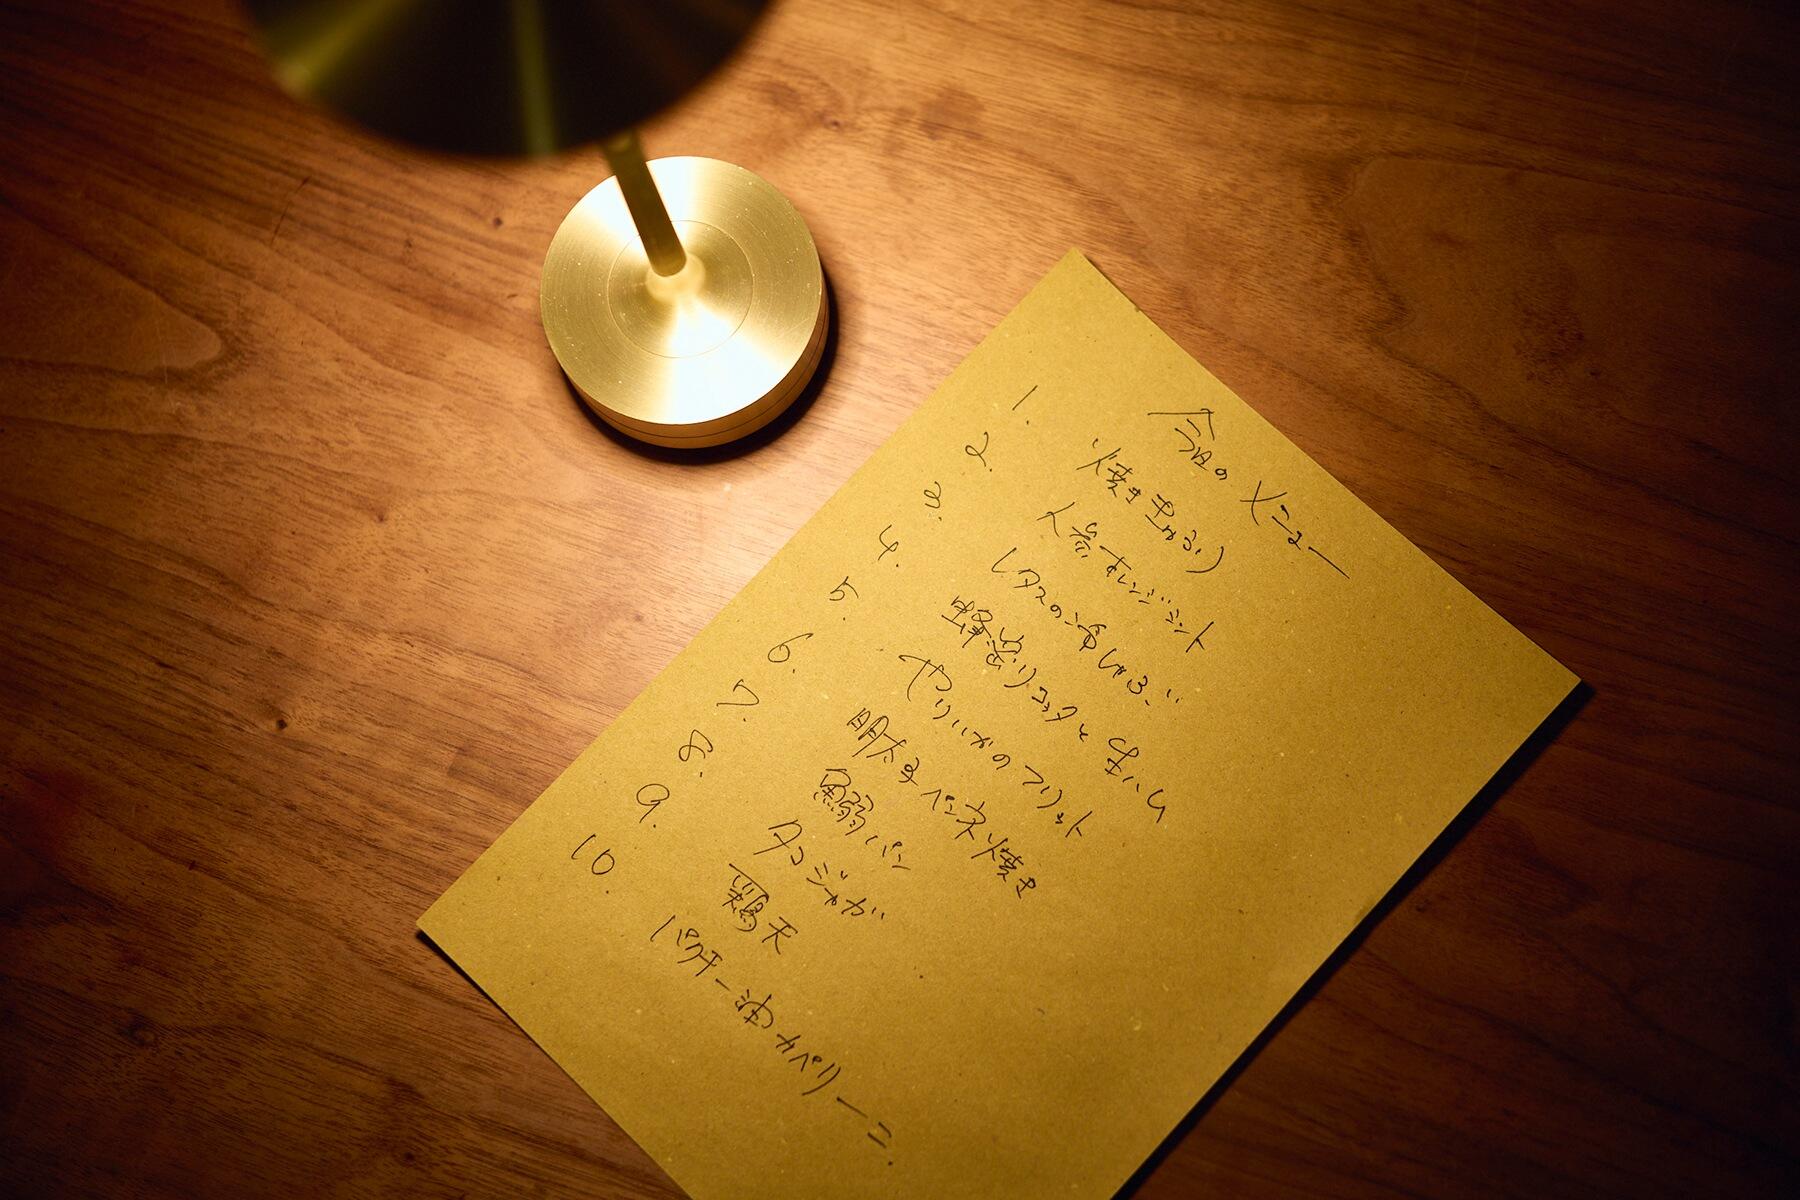 今日のメニュー
1. 焼ききゅうり
2. 人参オレンジミント
3. レタスの湯しゃぶ
4. 蜂蜜リコッタと生ハム
5. やりいかのフリット
6. 明太子ペンネ焼き
7. 魚弱パン
8. タコジャガ
9. 鶏天
10. パクチー油カペリーニ